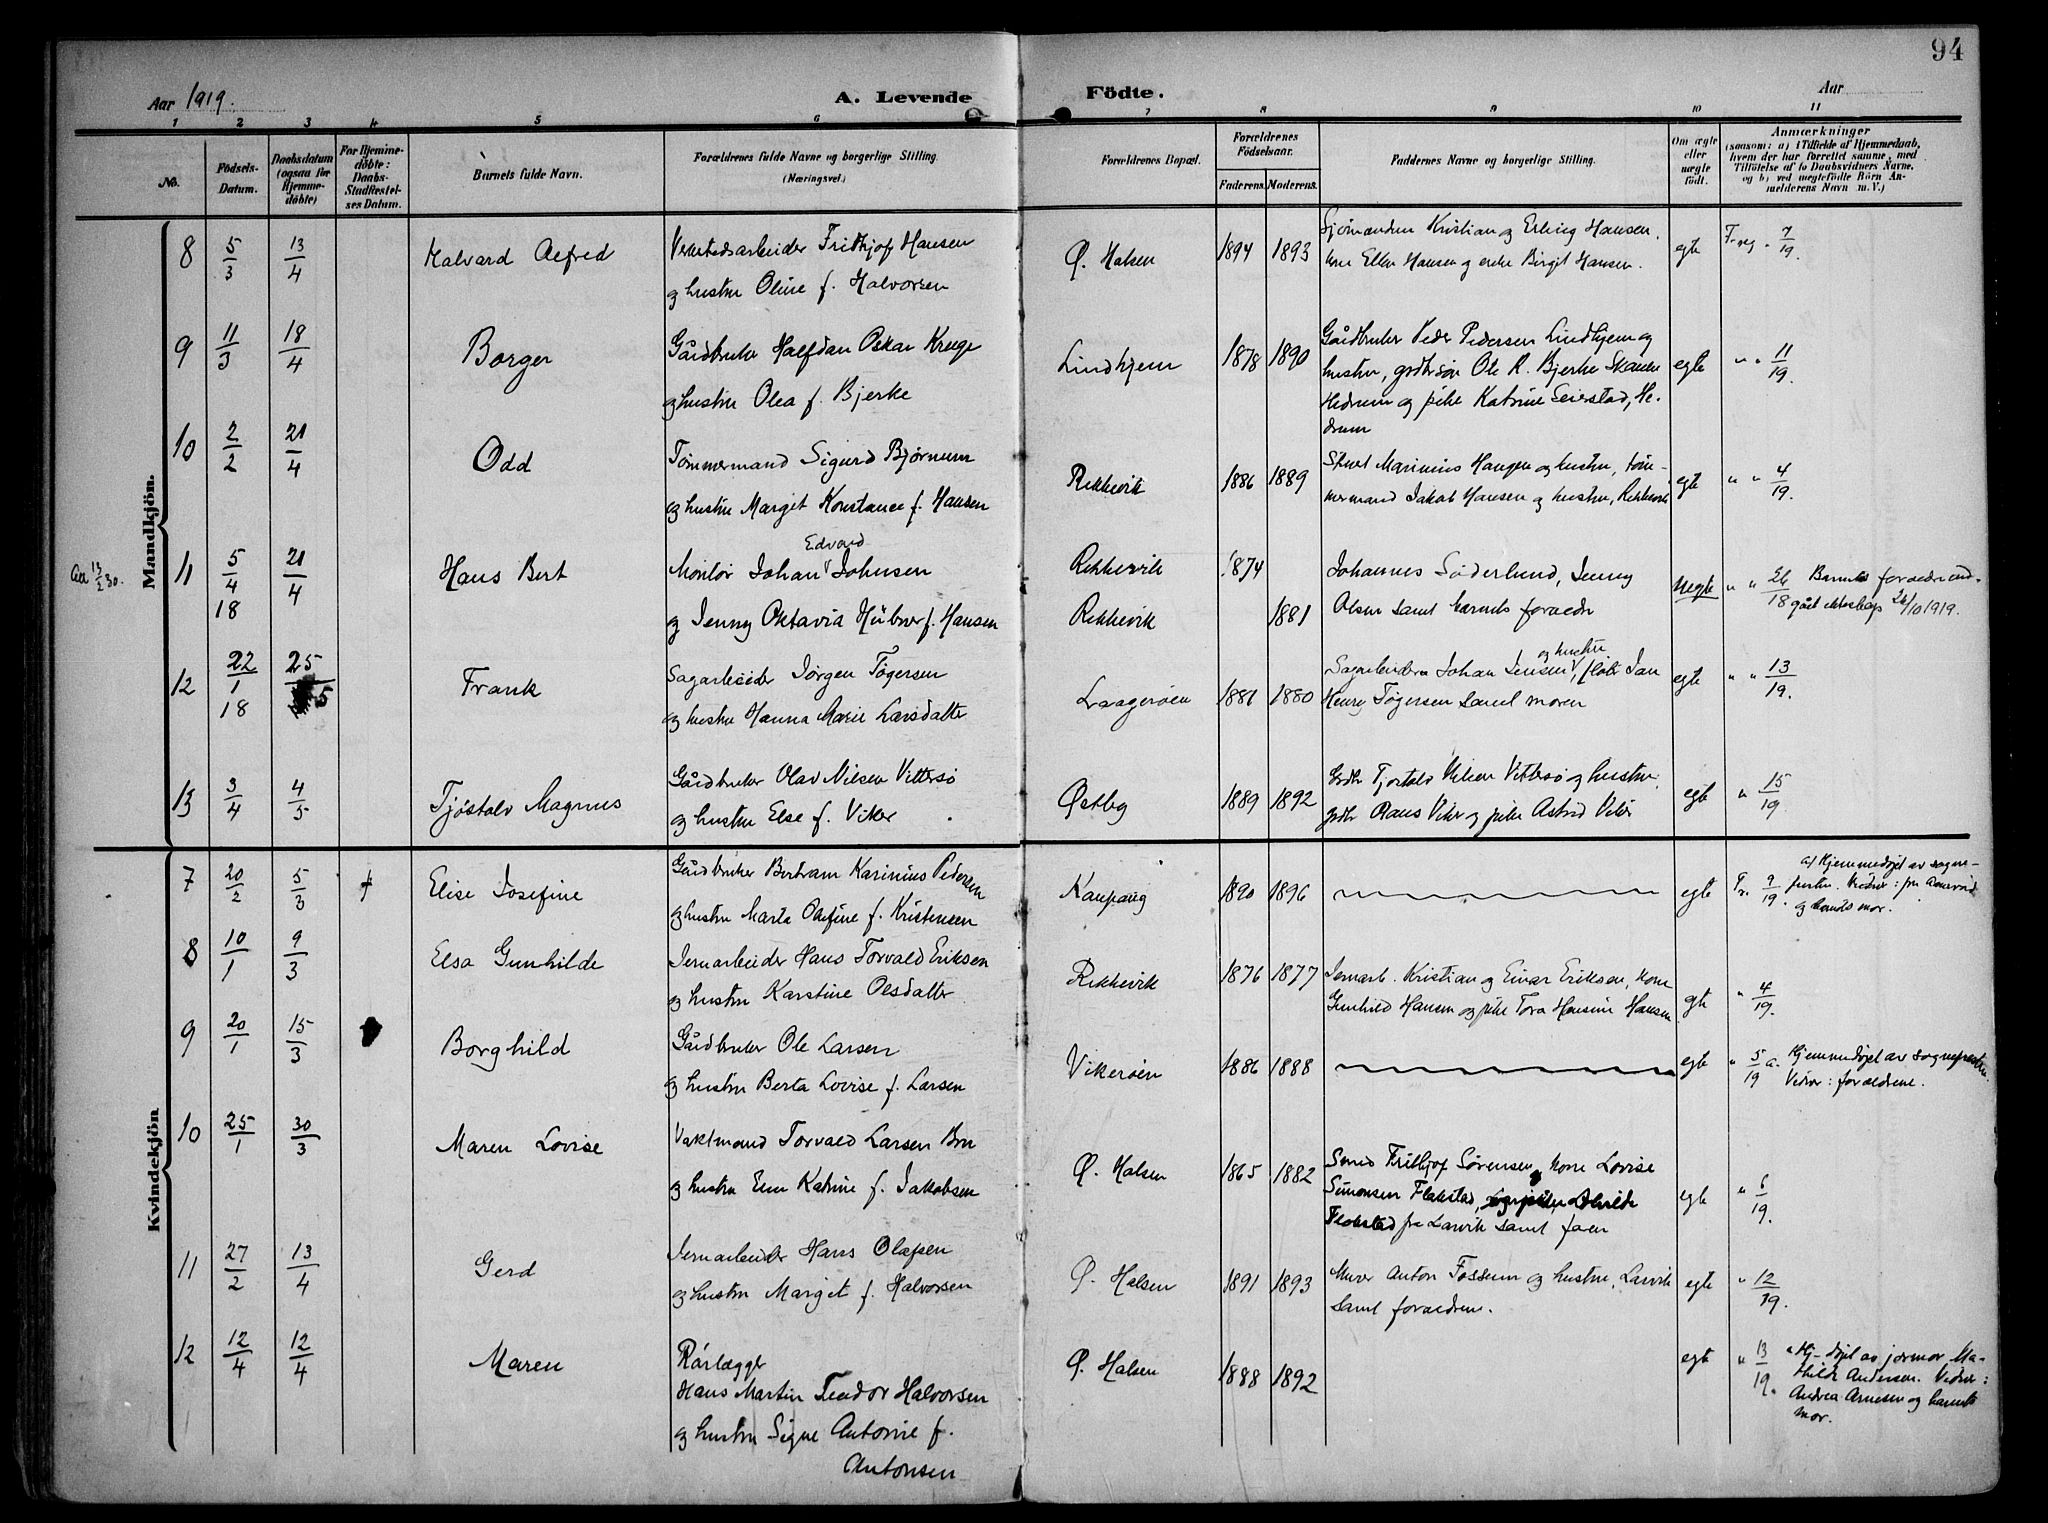 94
Aar 1919.
A. Levende
Fødte.
Aar
1 2 3 4 5 6 7 8 9 10 11
No.
Födsels-Datum.
Daabsdatum (ogsaa for Hjemmedöbte)
For Hjemmedöbte: Daabs-Stadfæstelses Datum.
Barnets fulde Navn.
Forældrenes fulde Navne og borgerlige Stilling.
(Næringsvei.)
Forældrenes Bopæl.
Forældrenes Födselsaar.
Faderens. Moderens.
Faddernes Navne og borgerlige Stilling.
Om ægte eller uægte födt.
Anmærkninger
(saasom: a) i Tilfælde af Hjemmedaab, hvem der har forrettet samme, med Tilföielse af to Daabsvidners Navne, og b) ved uegtefödte Börn Anmelderens Navn m. V.)
Mandkjön.
8 5/3 13/4 Halvard Alfred Verkstedsarbeider Fridtjof Hansen
og hustru Oline f. Halvorsen
Ø. Halsen 1894 1893 Sjömanden Kristian og Erling Hansen,
kone Ellen Hansen og enke Birgit Hansen. egte 7/19.
9 11/3 18/4 Borger Gårdbruker Halfdan Oskar Kruge
og hustru Olea f. Bjerke
Lindhjem 1878 1890 Gårdbruker Peder Pedersen Lindhjem og
hustru, grdbr.søn Ole R. Bjerke Skauen
Hedrum og pike Katrine Seierstad, He-
drum egte " " 11/19.
10 2/2 21/4 Odd Tömmermand Sigurd Bjørnum
og hustru Margit Konstance f. Hansen
Rekkevik 1886 1889 Marinius Haugen og hustru, töm-
mermand Jakob Hansen og hustru, Rekkevik egte " " 4/19.
11 5/4 18 21/4 Hans Bert Montör Johan Edvard Johnsen
og Jenny Oktavia Hübner f. Hansen
Rekkevik 1874
Rekkevik 1881
Johannes Söderlund, Jenny
Olsen samt barnets forældre uegte " " 26/18 Barnets forældre ind-
gået ekteskap 26/10 1919.
12 22/1 18 25/5 Frank Sagarbeider Jörgen Tögersen
og hustru Hanna Marie Larsdatter
Laageröen 1881 1880 Sagarbeider Johan Jensen og hustru, Jan
Henry Tögersen samt moren egte " " 13/19.
13 3/4 4/5 Tjöstolv Magnus Gårdbruker Olav Nilsen Vittersö
og hustru Else f. Viker
Østby 1889 1892 Grdbr Tjostolv Nilsen Vittersö og hustru,
grdbr Viker og pike Astrid Viker egte " 15/19.
Kvindekjön
7 20/2 5/3 + Elise Josefine Gårdbruker Bertram Karinius Pedersen
og hustru Marta Olefine f. Kristensen
Kaupang 1890 1896 egte 9/19. a) Hjemmedöpt av sogne-
presten.
og barnets mor.
8 10/1 9/3 Elsa Gunhilde Jernarbeider Hans Torvald Eriksen
og hustru Karstine Olsdatter
Rekkevik 1876 1877 Jernarb. Kristian og Einar Eriksen, kone
Gunhild Hansen og pike Tora Hansine Hansen egte " 4/19.
9 20/1 15/3 Borghild Gårdbruker Ole Larsen
og hustru Berta Lovise f. Larsen
Vikeröen 1886 1888 egte " 5/19 a. Hjemmedöpt av sognepresten.
Vidner: forældrene.
10 25/1 30/3 Maren Lovise Vaktmand Torvald Larsen Bru
og hustru Elen Katrine f. Jakobsen
Ø. Halsen 1865 1882 Smed Fritjof Sørensen, kone Lovise
Simonsen Flakstad,
Flakstad fra Larvik samt faren egte " 6/19.
11 27/2 13/4 Gerd Jernarbeider Hans Olafsen
og hustru Margit f. Halvorsen
Ø. Halsen 1891 1893 Murer Anton Fossum og hustru, Larvik
samt forældrene. egte " 12/19.
12 12/4 12/4 Maren Rörlægger
Hans Martin Teodor Halvorsen
og hustru Signe Antonie f.
Antonsen
Ø. Halsen 1888 1892 egte " 13/19. Hj-döpt av jormor Ma-
thilde Andersen. Vidner:
Andrea Arnesen og barnets
mor.